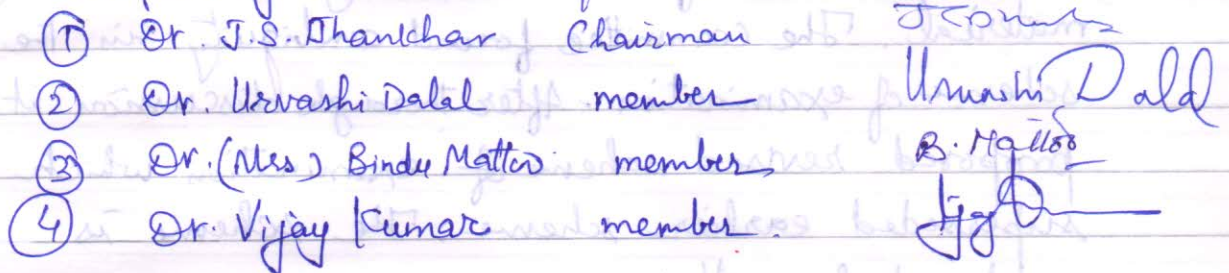 ① Dr. J.S. Dhankhar Chairman
② Dr. Urvashi Dalal member Urvashi Dalal
③ Dr. (Mrs) Bindu Mattoo member B. Mattoo
④ Dr. Vijay Kumar member.